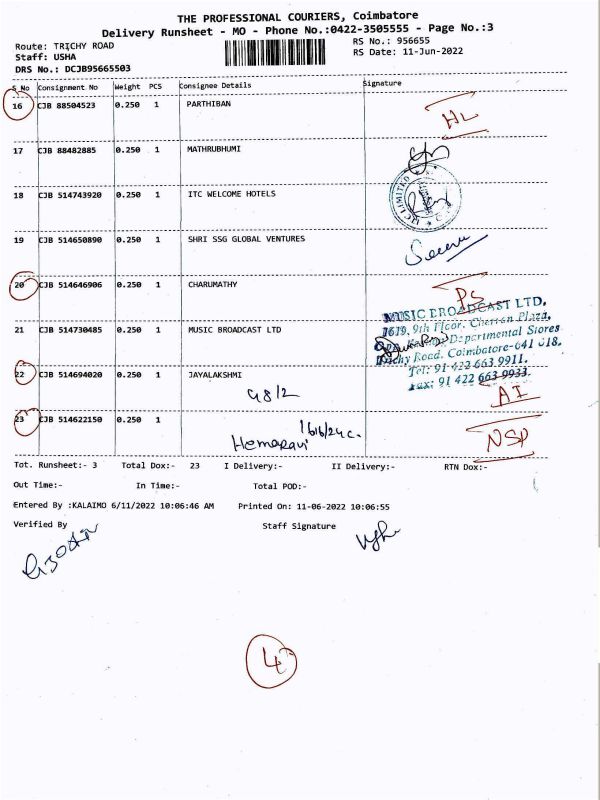 THE PROFESSIONAL COURIERS, Coimbatore
Delivery Runsheet - MO - Phone No.:0422-3505555 - Page No.:3
Route: TRICHY ROAD
RS No.: 956655
Staff: USHA
RS Date: 11-Jun-2022
DRS No.: DCJB95665503
S No Consignment No Weight PCS Consignee Details Signature
16 CJB 88504523 0.250 1 PARTHIBAN HL
17 CJB 88482885 0.250 1 MATHRUBHUMI
18 CJB 514743920 0.250 1 ITC WELCOME HOTELS
19 CJB 514650890 0.250 1 SHRI SSG GLOBAL VENTURES
20 CJB 514646906 0.250 1 CHARUMATHY PS
MUSIC BROADCAST LTD.
1619, 9th Floor, Cherran Plaza,
21 CJB 514730485 0.250 1 MUSIC BROADCAST LTD
Departmental Stores
Trichy Road, Coimbatore-641 018.
Tel: 91 422 663 9911.
Fax: 91 422 663 9933.
22 CJB 514694020 0.250 1 JAYALAKSHMI
G8/2
AI
23 CJB 514622150 0.250 1
NSP
Tot. Runsheet:- 3 Total Dox:- 23 I Delivery:- II Delivery:- RTN Dox:-
Out Time:- In Time:- Total POD:-
Entered By :KALAIMO 6/11/2022 10:06:46 AM Printed On: 11-06-2022 10:06:55
Verified By Staff Signature
4